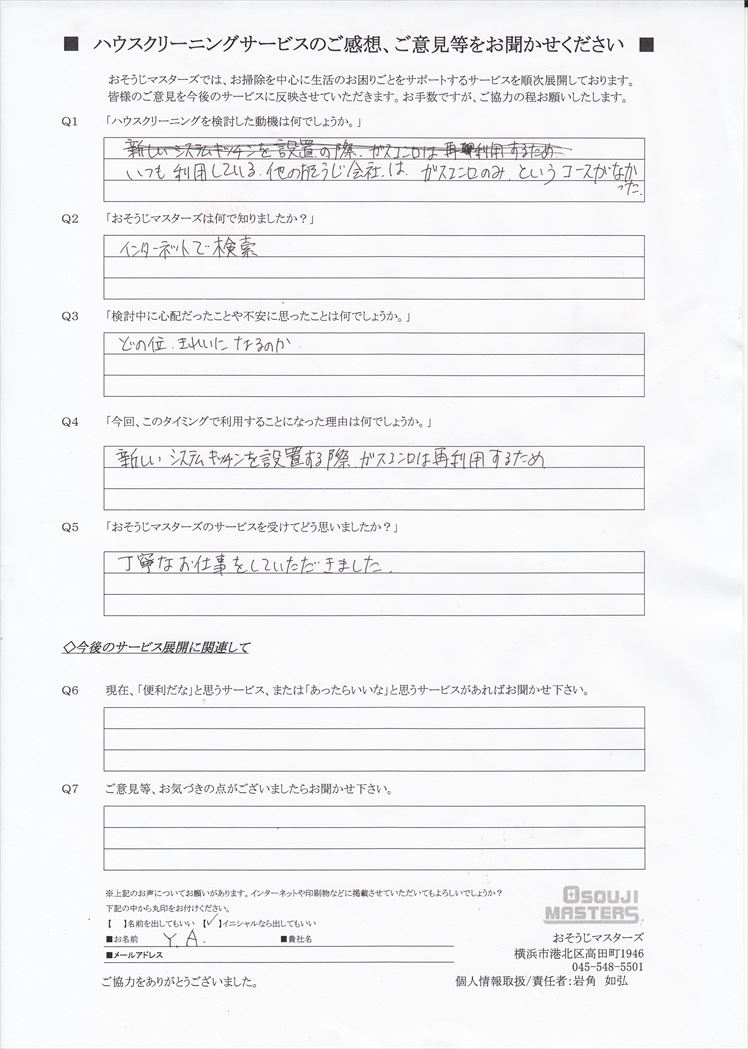 ■ ハウスクリーニングサービスのご感想、ご意見等をお聞かせください ■
おそうじマスターズでは、お掃除を中心に生活のお困りごとをサポートするサービスを順次展開しております。
皆様のご意見を今後のサービスに反映させていただきます。お手数ですが、ご協力の程お願いしたします。
Q1 「ハウスクリーニングを検討した動機は何でしょうか。」
新しいシステムキッチンを設置の際、ガスコンロは再利用するため
いつも利用している他のおそうじ会社は、ガスコンロのみ、というコースがなか
った.
Q2 「おそうじマスターズは何で知りましたか？」
インターネットで検索
Q3 「検討中に心配だったことや不安に思ったことは何でしょうか。」
どの位、きれいになるのか
Q4 「今回、このタイミングで利用することになった理由は何でしょうか。」
新しいシステムキッチンを設置する際、ガスコンロは再利用するため
Q5 「おそうじマスターズのサービスを受けてどう思いましたか？」
丁寧なお仕事をしていただきました.
◇今後のサービス展開に関連して
Q6 現在、「便利だな」と思うサービス、または「あったらいいな」と思うサービスがあればお聞かせ下さい。
Q7 ご意見等、お気づきの点がございましたらお聞かせ下さい。
※上記のお声についてお願いがあります。インターネットや印刷物などに掲載させていただいてもよろしいでしょうか？
下記の中から丸印をお付けください。
【 】名前を出してもいい 【✓】イニシャルなら出してもいい
■お名前 Y.A. ■貴社名
■メールアドレス
ご協力をありがとうございました。
OSOUJI
MASTERS.
おそうじマスターズ
横浜市港北区高田町1946
045-548-5501
個人情報取扱/責任者:岩角 如弘